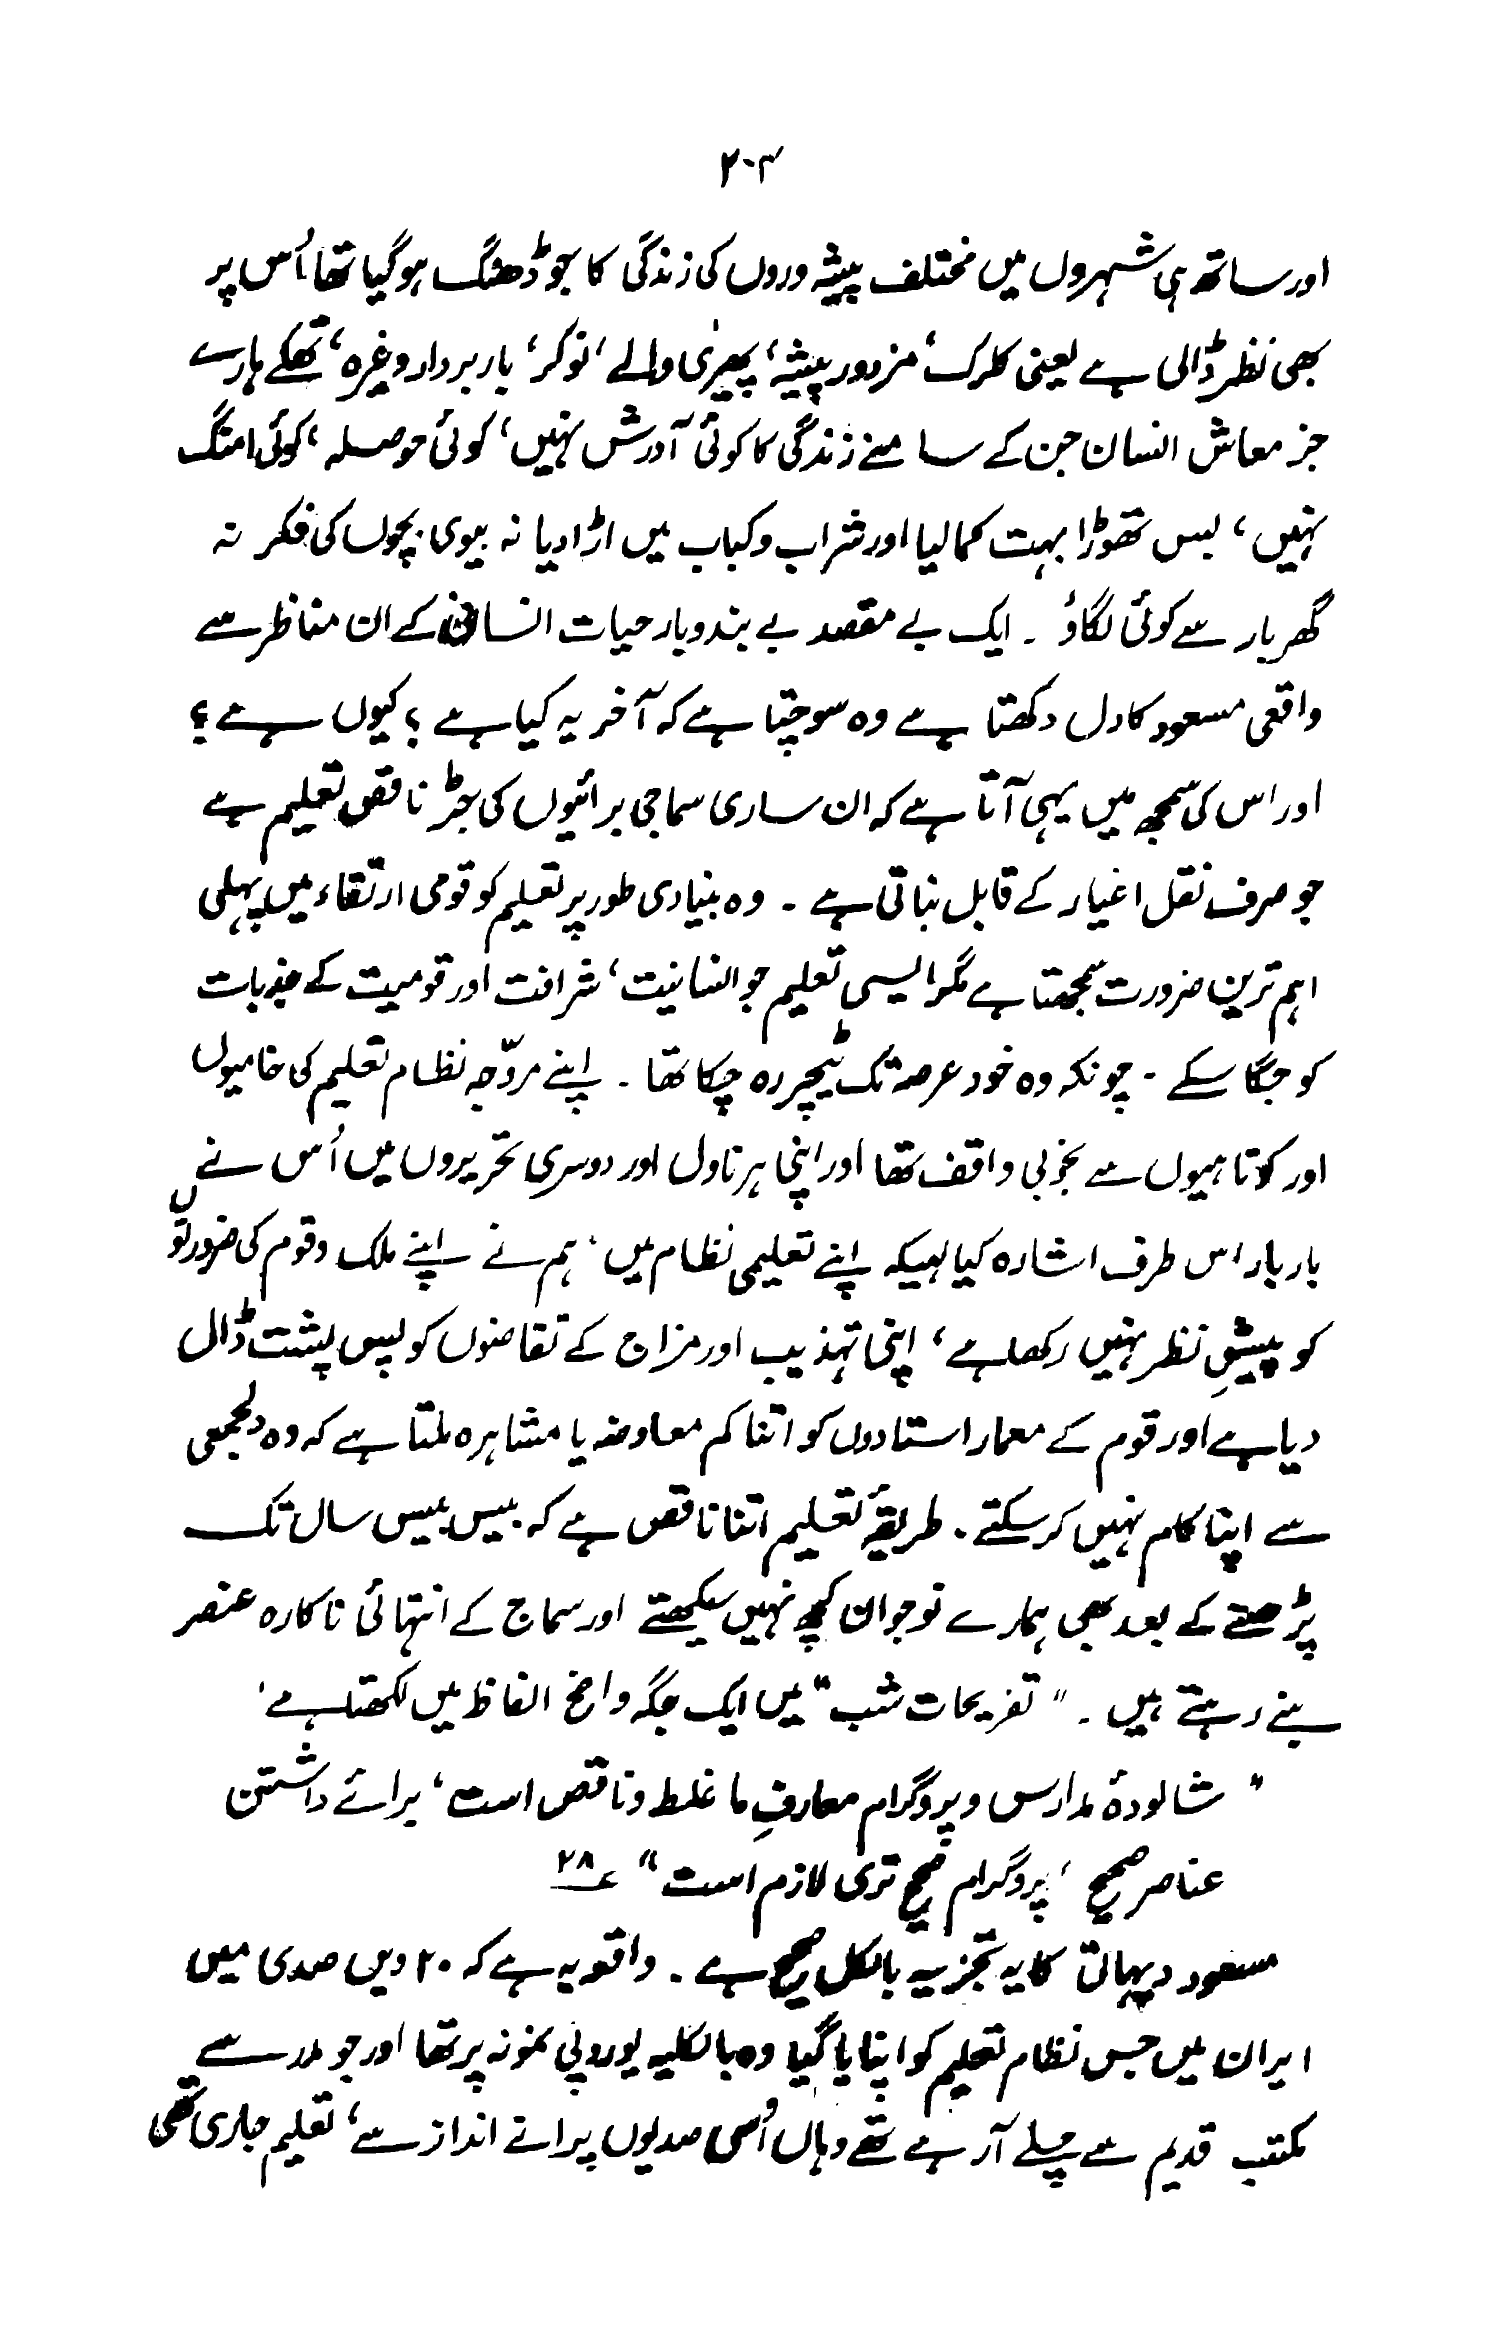 ۲۰۳
اور ساتھ ہی شہروں میں مختلف پیشہ وروں کی زندگی کا جو ڈھنگ ہوگیا تھا اُس پر
بھی نظر ڈالی ہے یعنی کلرک، مزدور پیشہ، پھیری والے، نوکر، باربردار وغیرہ، تھکے ہارے
جز معاش انسان جن کے سامنے زندگی کا کوئی آدرش نہیں، کوئی حوصلہ، کوئی امنگ
نہیں، بس تھوڑا بہت کمالیا اور شراب و کباب میں اڑادیا نہ بیوی بچوں کی فکر نہ
گھر بار سے کوئی لگاؤ ۔ ایک بے مقصد بے بندوبار حیات انسانی کے ان مناظر سے
واقعی مسعود کا دل دکھتا ہے وہ سوچتا ہے کہ آخر یہ کیا ہے ؟ کیوں ہے ؟
اور اس کی سمجھ میں یہی آتا ہے کہ ان ساری سماجی برائیوں کی جڑ ناقص تعلیم ہے
جو صرف نقل اغیار کے قابل بناتی ہے ۔ وہ بنیادی طور پر تعلیم کو قومی ارتقاء میں پہلی
اہم ترین ضرورت سمجھتا ہے مگر ایسی تعلیم جو انسانیت، شرافت اور قومیت کے جذبات
کو جگا سکے ۔ چونکہ وہ خود عرصہ تک ٹیچر رہ چکا تھا ۔ اپنے مروّجہ نظام تعلیم کی خامیوں
اور کوتاہیوں سے بخوبی واقف تھا اور اپنی ہر ناول اور دوسری تحریروں میں اُس نے
بار بار اس طرف اشارہ کیا ہیکہ اپنے تعلیمی نظام میں، ہم نے اپنے ملک و قوم کی ضرورتوں
کو پیشِ نظر نہیں رکھا ہے، اپنی تہذیب اور مزاج کے تقاضوں کو پس پشت ڈال
دیا ہے اور قوم کے معمار استادوں کو اتنا کم معاوضہ یا مشاہرہ ملتا ہے کہ وہ دلجمعی
سے اپنا کام نہیں کرسکتے ۔ طریقۂ تعلیم اتنا ناقص ہے کہ بیس بیس سال تک
پڑھنے کے بعد بھی ہمارے نوجوان کچھ نہیں سیکھتے اور سماج کے انتہائی ناکارہ عنصر
بنے رہتے ہیں ۔ "تفریحات شب" میں ایک جگہ واضح الفاظ میں لکھتا ہے،
"شالودۂ مدارس و پروگرام معارفِ ما غلط و ناقص است، برائے داشتن
عناصر صحیح، پروگرام صحیح تری لازم است" ؏۲۸
مسعود دیہاتی کا یہ تجزیہ بالکل صحیح ہے ۔ واقعہ یہ ہے کہ ۲۰ ویں صدی میں
ایران میں جس نظام تعلیم کو اپنایا گیا وہ بالکلیہ یوروپی نمونہ پر تھا اور جو مدرسے
مکتب قدیم سے چلے آرہے تھے وہاں اُسی صدیوں پرانے انداز سے، تعلیم جاری تھی